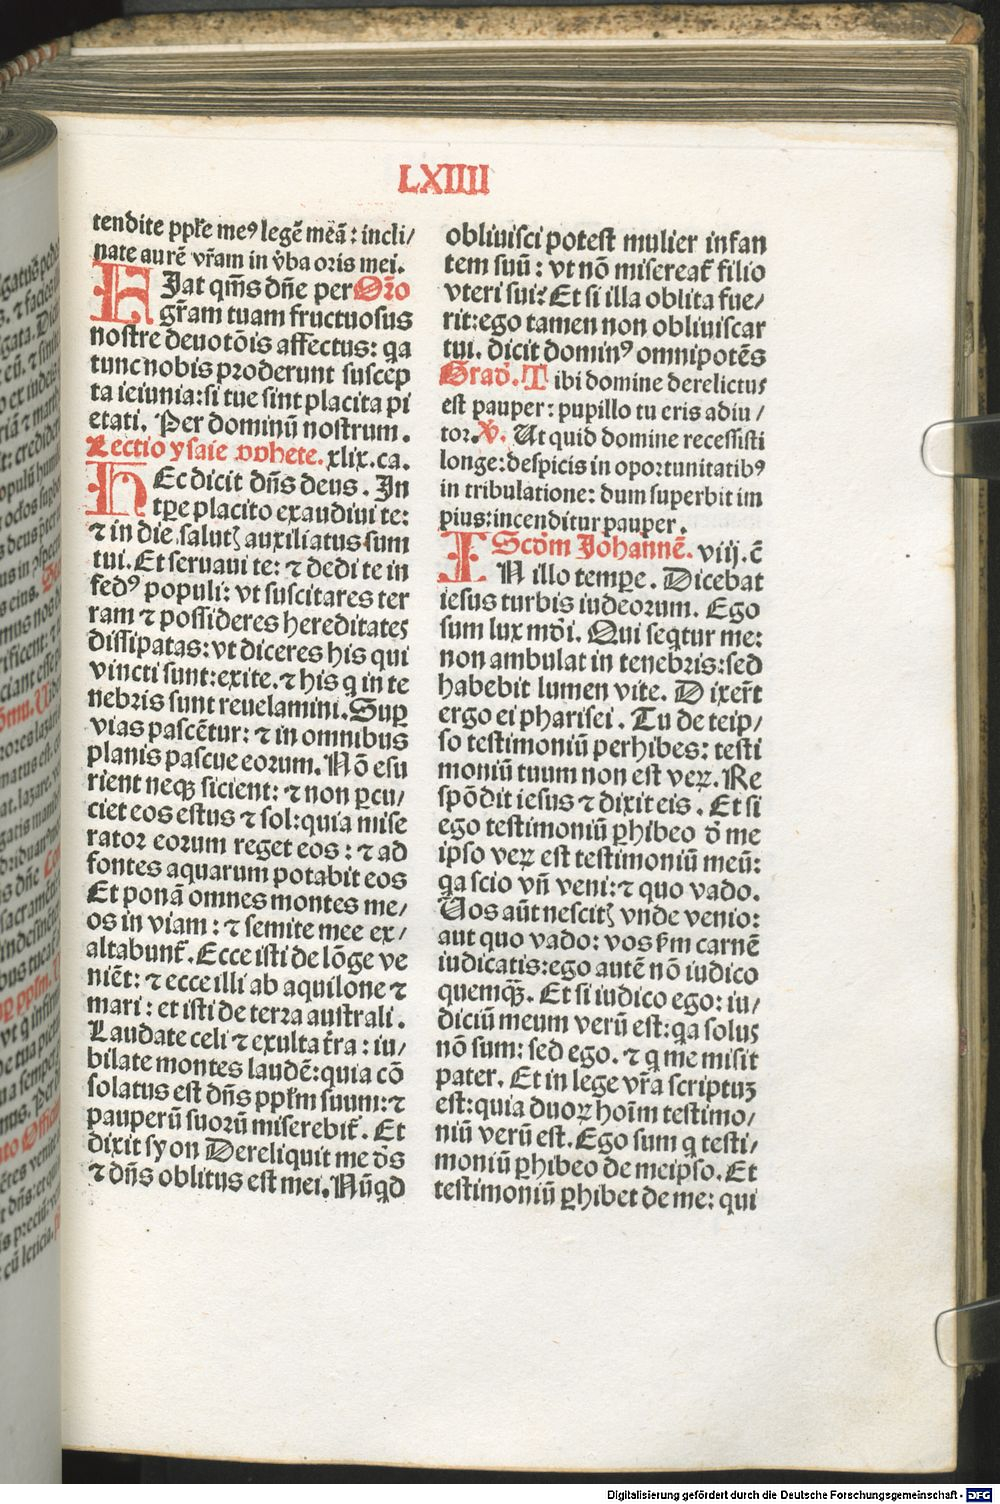 LXIIII
tendite ppl̄e meꝰ legē meā: incli/
nate aurē vr̄am in v̓ba oris mei.
FIat qm̄s dn̄e per Or̄o
gr̄am tuam fructuosus
nostre deuotōis affectus: qa
tunc nobis proderunt suscep
ta ieiunia: si tue sint placita pi
etati. Per dominū nostrum.
Lectio ysaie ꝓphete. xlix. ca.
HEc dicit dn̄s deus. In
tꝑe placito exaudiui te:
⁊ in die salutꝭ auxiliatus sum
tui. Et seruaui te: ⁊ dedi te in
fedꝰ populi: vt suscitares ter
ram ⁊ possideres hereditates
dissipatas: vt diceres his qui
vincti sunt: exite. ⁊ his q in te
nebris sunt reuelamini. Suꝑ
vias pascētur: ⁊ in omnibus
planis pascue eorum. Nō esu
rient neqꝫ sicient: ⁊ non ꝑcu/
ciet eos estus ⁊ sol: quia mise
rator eorum reget eos: ⁊ ad
fontes aquarum potabit eos
Et ponā omnes montes me/
os in viam: ⁊ semite mee ex/
altabunt᷑. Ecce isti de lōge ve
niēt: ⁊ ecce illi ab aquilone ⁊
mari: et isti de terra australi.
Laudate celi ⁊ exulta t̄ra: iu/
bilate montes laudē: quia cō
solatus est dn̄s ppl̄m suum: ⁊
pauperū suorū miserebit᷑. Et
dixit syon Dereliquit me dn̄s
⁊ dn̄s oblitus est mei. Nūqd
obliuisci potest mulier infan
tem suū: vt nō misereat᷑ filio
vteri sui? Et si illa oblita fue/
rit: ego tamen non obliuiscar
tui. dicit dominꝰ omnipotēs
Grad̓. Tibi domine derelictus
est pauper: pupillo tu eris adiu/
tor. V̓. Ut quid domine recessisti
longe: despicis in oportunitatibꝰ
in tribulatione: dum superbit im
pius: incenditur pauper.
Scd̓m Johannē. viij. c̄
IN illo tempꝑe. Dicebat
iesus turbis iudeorum. Ego
sum lux mūdi. Qui seqtur me:
non ambulat in tenebris: sed
habebit lumen vite. Dixer̄t
ergo ei pharisei. Tu de teip/
so testimoniū perhibes: testi
moniū tuum non est veꝝ. Re
spōdit iesus ⁊ dixit eis. Et si
ego testimoniū ꝑhibeo d̓ me
ipso veꝝ est testimoniū meū:
qa scio vn̄ veni: ⁊ quo vado.
Vos aūt nescitꝭ vnde venio:
aut quo vado: vos ẜm carnē
iudicatis: ego autē nō iudico
quemqꝫ. Et si iudico ego: iu/
diciū meum verū est: qa solus
nō sum: sed ego. ⁊ q me misit
pater. Et in lege vr̄a scriptuꝫ
est: quia duoꝝ hoīm testimo/
niū verū est. Ego sum q testi/
moniū ꝑhibeo de meipso. Et
testimoniū ꝑhibet de me: qui
Digitalisierung gefördert durch die Deutsche Forschungsgemeinschaft - DFG